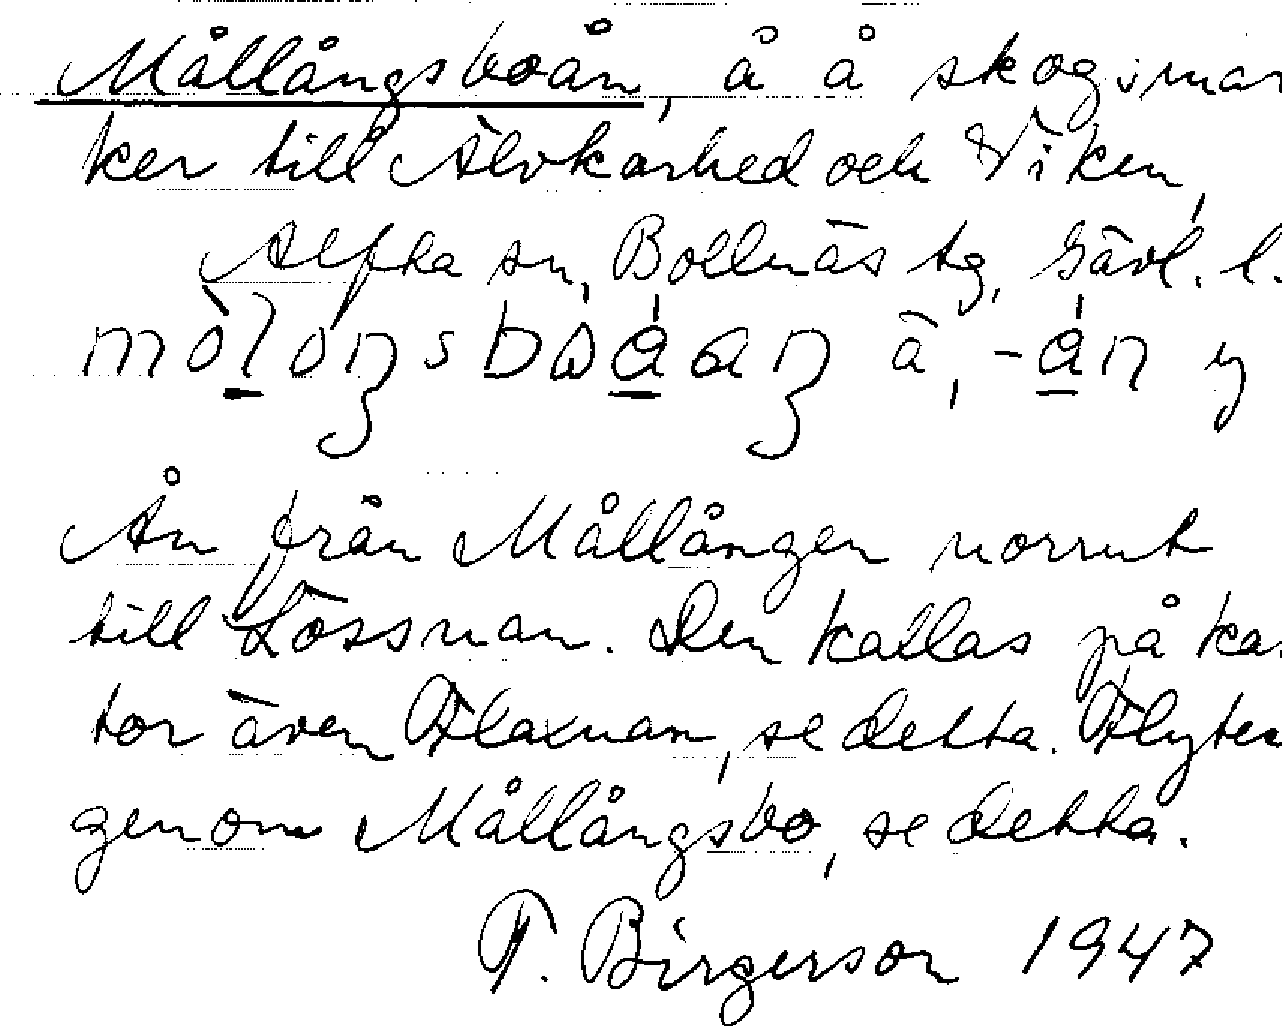 Mållångsboån, å å skogsmar
ker till Älvkarhed och Viken,
Alfta sn, Bollnäs tg, Gävl. l.
å, y
Ån från Mållången norrut
till Lössnan. Den kallas på kar
tor även Flaxnan, se detta. Flyter
genom Mållångsbo, se detta.
T. Birgerson 1947